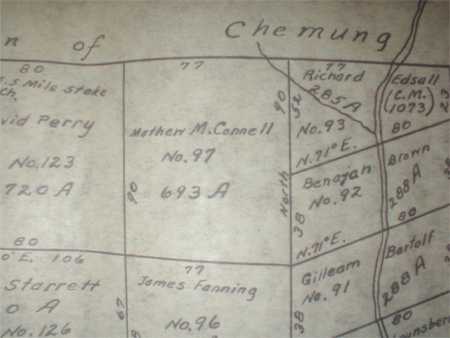 n of Chemung
80
.S Mile Stake
ch.
vid Perry
No. 123
720 A
80
77
Mathew M. Connell
No. 97
693 A
90
77
Richard
285 A
No. 93
N. 71° E.
90
52
North
38
Edsall
(C.M.)
1073)
80
Benajah
No. 92
N. 71° E.
Brown
288 A
80
0° E. 106
Starrett
0 A
No. 126
67
77
James Fanning
No. 96
Gillearn
No. 91
38
Bartolf
288 A
80
ounsber